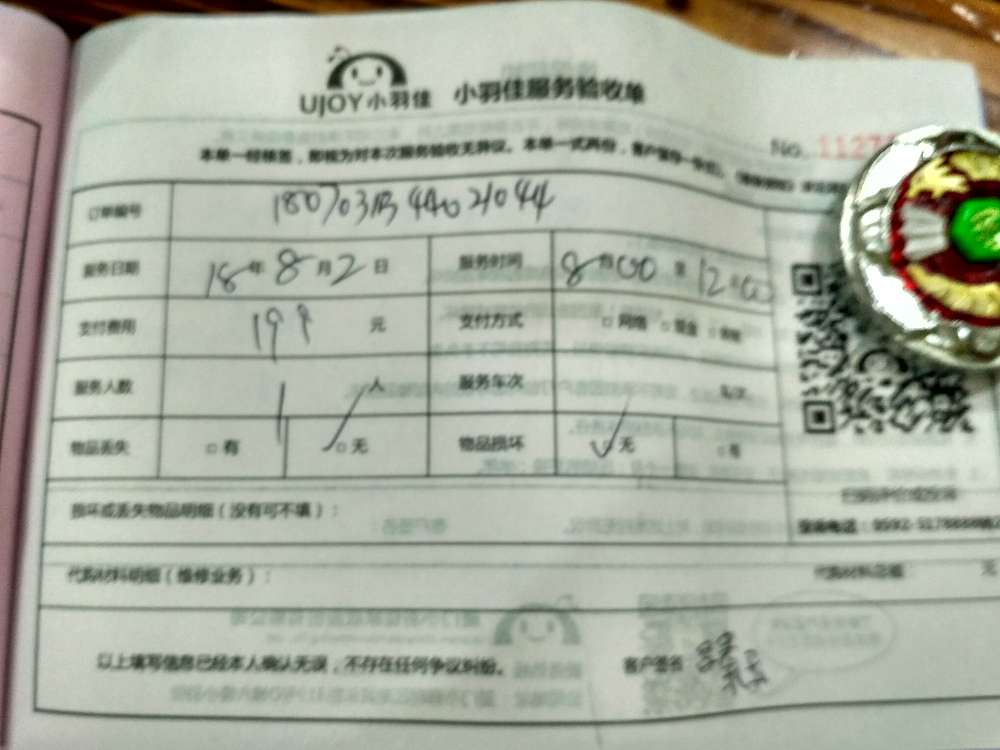 UJOY小羽佳 小羽佳服务验收单
No. 1127
本单一经核签，即视为对本次服务验收无异议。本单一式两份，
订单编号
服务日期 18年8月2日 服务时间 8时00至12:00
支付费用 199 元 支付方式 □网络 □现金
服务人数 1人 服务车次 车/次
物品丢失 □有 □无 物品损坏 □无 □有
损坏或丢失物品明细（没有可不填）：
扫码评价或投诉
投诉电话：0592-
代购材料明细（维修业务）： 代购材料总额： 元
以上填写信息已经本人确认无误，不存在任何争议纠纷。 客户签名：